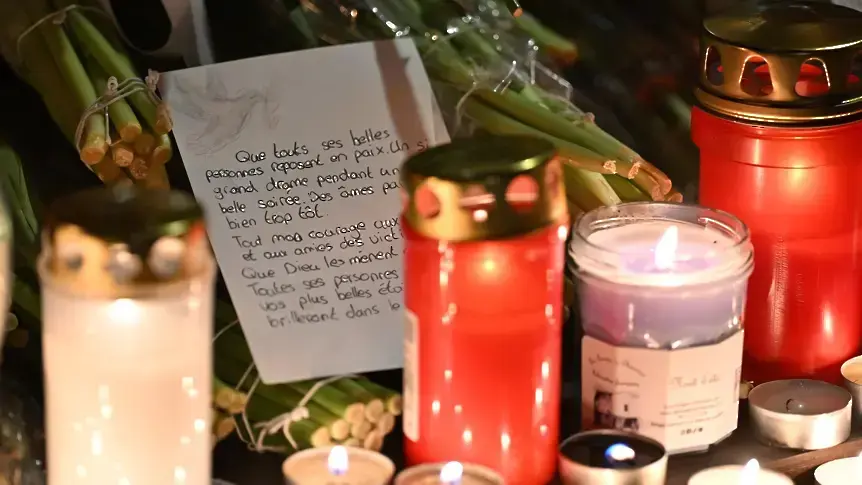 Que touts ses belles
personnes reposent en paix. Un si
grand drame pendant un
belle soirée. Des âmes pa
bien trop tôt.
Tout mon courage aux
et aux amies des vict
Que Dieu les mènent
Toutes ses personnes
vos plus belles étoi
brilleront dans la